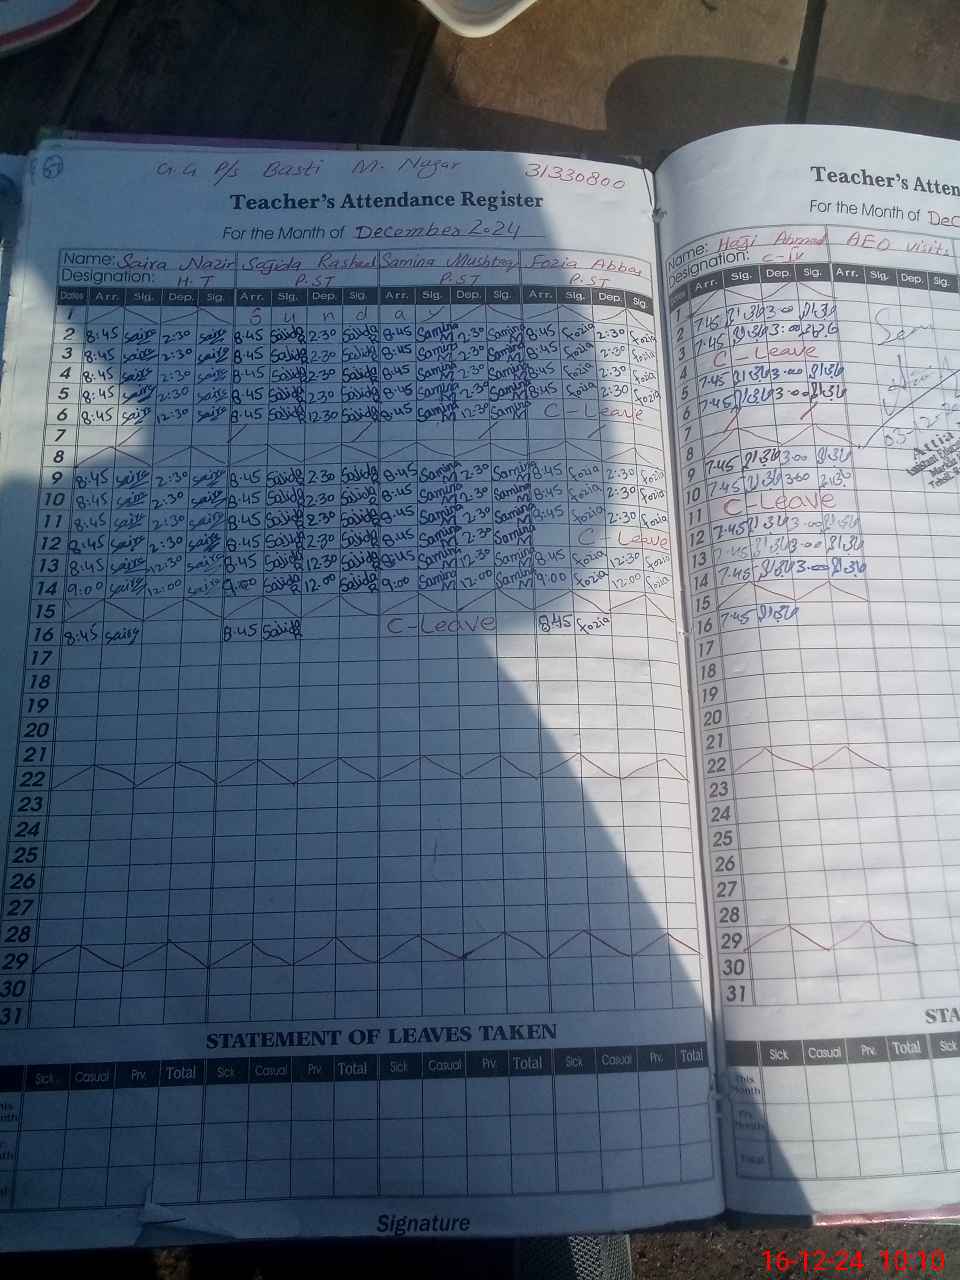 G.G P/s Basti M. Nagar 31330800
Teacher's Attendance Register
For the Month of December 2024
Name: Saira Nazir Sajida Rasheed Samina Mushtaq Fozia Abbas
Designation: H.T P.ST P.ST P.ST
Dates Arr. Sig. Dep. Sig. Arr. Sig. Dep. Sig. Arr. Sig. Dep. Sig. Arr. Sig. Dep. Sig.
1 S u n d a y
2 8:45 Saira 2:30 Saira 8:45 Sajida R 2:30 Sajida R 8:45 Samina M 2:30 Samina M 8:45 Fozia 2:30 Fozia
3 8:45 Saira 2:30 Saira 8:45 Sajida R 2:30 Sajida R 8:45 Samina M 2:30 Samina M 8:45 Fozia 2:30 Fozia
4 8:45 Saira 2:30 Saira 8:45 Sajida R 2:30 Sajida R 8:45 Samina M 2:30 Samina M 8:45 Fozia 2:30 Fozia
5 8:45 Saira 2:30 Saira 8:45 Sajida R 2:30 Sajida R 8:45 Samina M 2:30 Samina M 8:45 Fozia 2:30 Fozia
6 8:45 Saira 12:30 Saira 8:45 Sajida R 12:30 Sajida R 8:45 Samina M 12:30 Samina M C-Leave
7
8
9 8:45 Saira 2:30 Saira 8:45 Sajida R 2:30 Sajida R 8:45 Samina M 2:30 Samina M 8:45 Fozia 2:30 Fozia
10 8:45 Saira 2:30 Saira 8:45 Sajida R 2:30 Sajida R 8:45 Samina M 2:30 Samina M 8:45 Fozia 2:30 Fozia
11 8:45 Saira 2:30 Saira 8:45 Sajida R 2:30 Sajida R 8:45 Samina M 2:30 Samina M 8:45 Fozia 2:30 Fozia
12 8:45 Saira 2:30 Saira 8:45 Sajida R 2:30 Sajida R 8:45 Samina M 2:30 Samina M C Leave
13 8:45 Saira 12:30 Saira 8:45 Sajida R 12:30 Sajida R 8:45 Samina M 12:30 Samina M 8:45 Fozia 12:30 Fozia
14 9:00 Saira 12:00 Saira 9:00 Sajida R 12:00 Sajida R 9:00 Samina M 12:00 Samina M 9:00 Fozia 12:00 Fozia
15
16 8:45 Saira 8:45 Sajida R C-Leave 8:45 Fozia
17
18
19
20
21
22
23
24
25
26
27
28
29
30
31
STATEMENT OF LEAVES TAKEN
Sick Casual Prv. Total Sick Casual Prv. Total Sick Casual Prv. Total Sick Casual Prv. Total
Signature
Teacher's Atten
For the Month of Dec
Name: Hazi Ahmad AEO visits
Designation: C-IV
Dates Arr. Sig. Dep. Sig. Arr. Sig. Dep.
1
2 7:45 3:00
3 7:45 3:00
4 C-Leave
5 7:45 3:00
6 7:45 3:00
7
8
9 7:45 3:00
10 7:45 3:00
11 C-Leave
12 7:45 3:00
13 7:45 3:00
14 7:45 3:00
15
16 7:45
17
18
19
20
21
22
23
24
25
26
27
28
29
30
31
STA
Sick Casual Prv. Total Sick
This Month
Prv. Month
Total
16-12-24 10:10